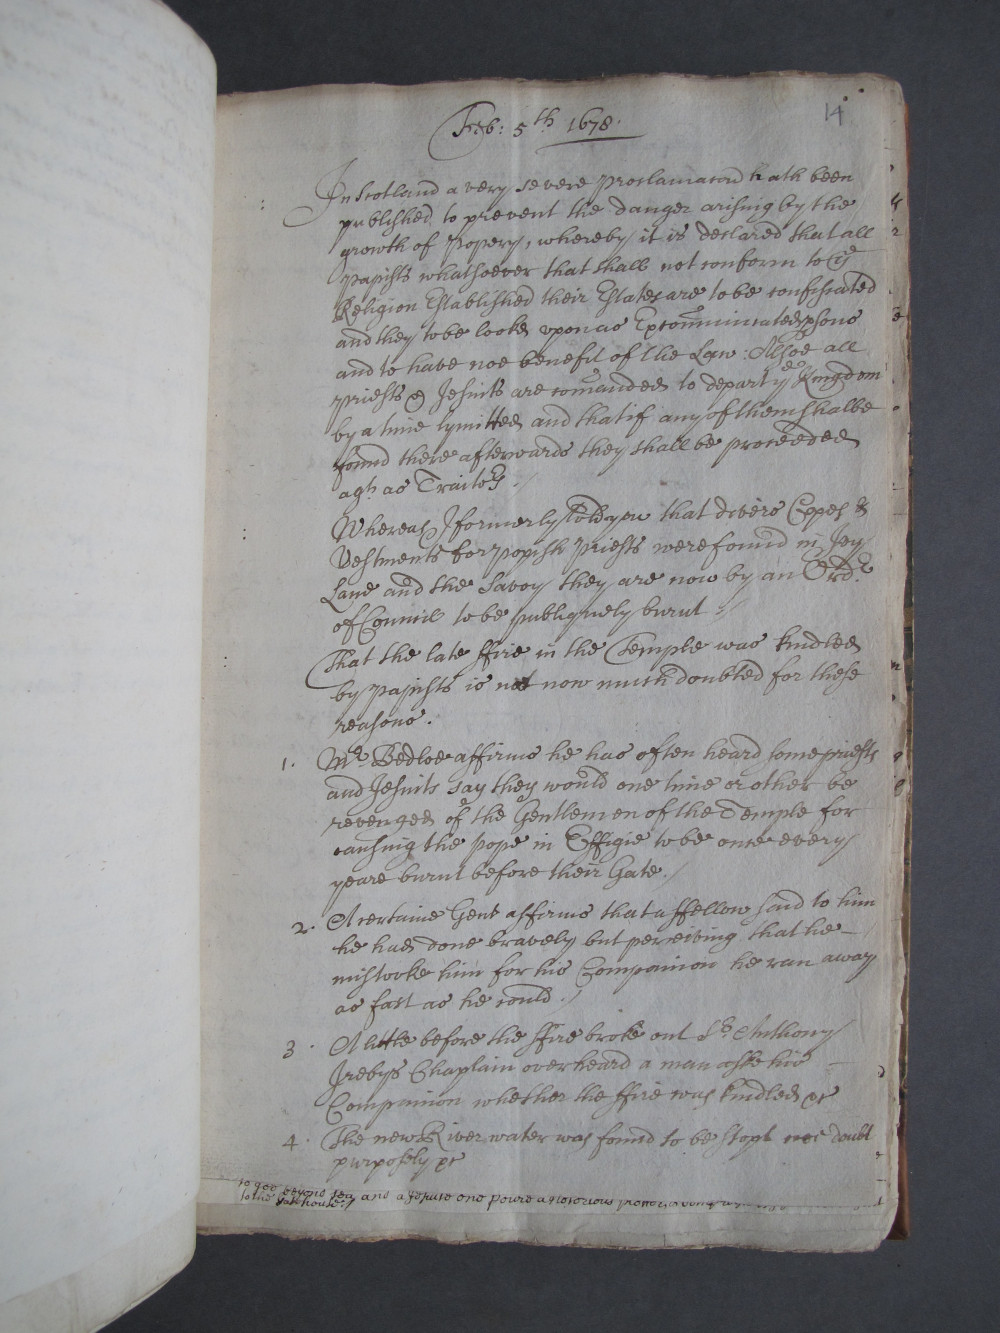 14
Feb: 5th 1678.
In Scotland a very severe Proclamacon hath been
published to prevent the danger arising by the
growth of Popery, whereby it is declared that all
papists whatsoever that shall not conform to ye
Religion Established their Estates are to be confiscated
and they to be lookt upon as Excommunicated psons
and to have noe benefit of the Law: Alsoe all
priests & Jesuits are comanded to depart ye Kingdom
by a time lymitted and that if any of them shalbe
found there afterwards they shall be proceeded
agt as Traitors.
Whereas I formerly told you that divers Coppes &
Vestments for Popish Priests were found in Ivy
Lane and the Savoy they are now by an Ordr
of Councill to be publiquely burnt
That the late ffire in the Temple was kindled
by papists is not now much doubted for these
reasons.
1. Mr Bedloe affirms he has often heard some priests
and Jesuits say they would one time or other be
revenged of the Gentlemen of the Temple for
causing the Pope in Effigie to be once every
yeare burnt before their Gate.
2. A certaine Gent affirms that a ffellow said to him
he had done bravely but perceiving that he
mistooke him for his Companion he ran away
as fast as he could.
3. A little before the ffire broke out Sr Anthony
Irebys Chaplain overheard a man aske his
Companion whether the ffire was kindled &c
4. The new River water was found to be stopt noe doubt
purposely &c
to goe beyond sea and a Jesuite one
to the Gatehouse